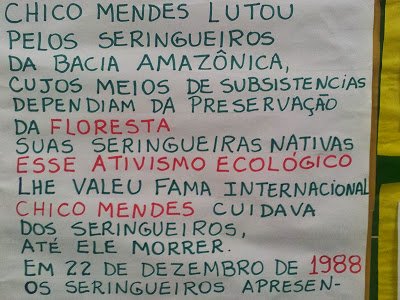 CHICO MENDES LUTOU
PELOS SERINGUEIROS
DA BACIA AMAZÔNICA,
CUJOS MEIOS DE SUBSISTENCIAS
DEPENDIAM DA PRESERVAÇÃO
DA FLORESTA
SUAS SERINGUEIRAS NATIVAS
ESSE ATIVISMO ECOLÓGICO
LHE VALEU FAMA INTERNACIONAL
CHICO MENDES CUIDAVA
DOS SERINGUEIROS,
ATÉ ELE MORRER.
EM 22 DE DEZEMBRO DE 1988
OS SERINGUEIROS APRESEN-